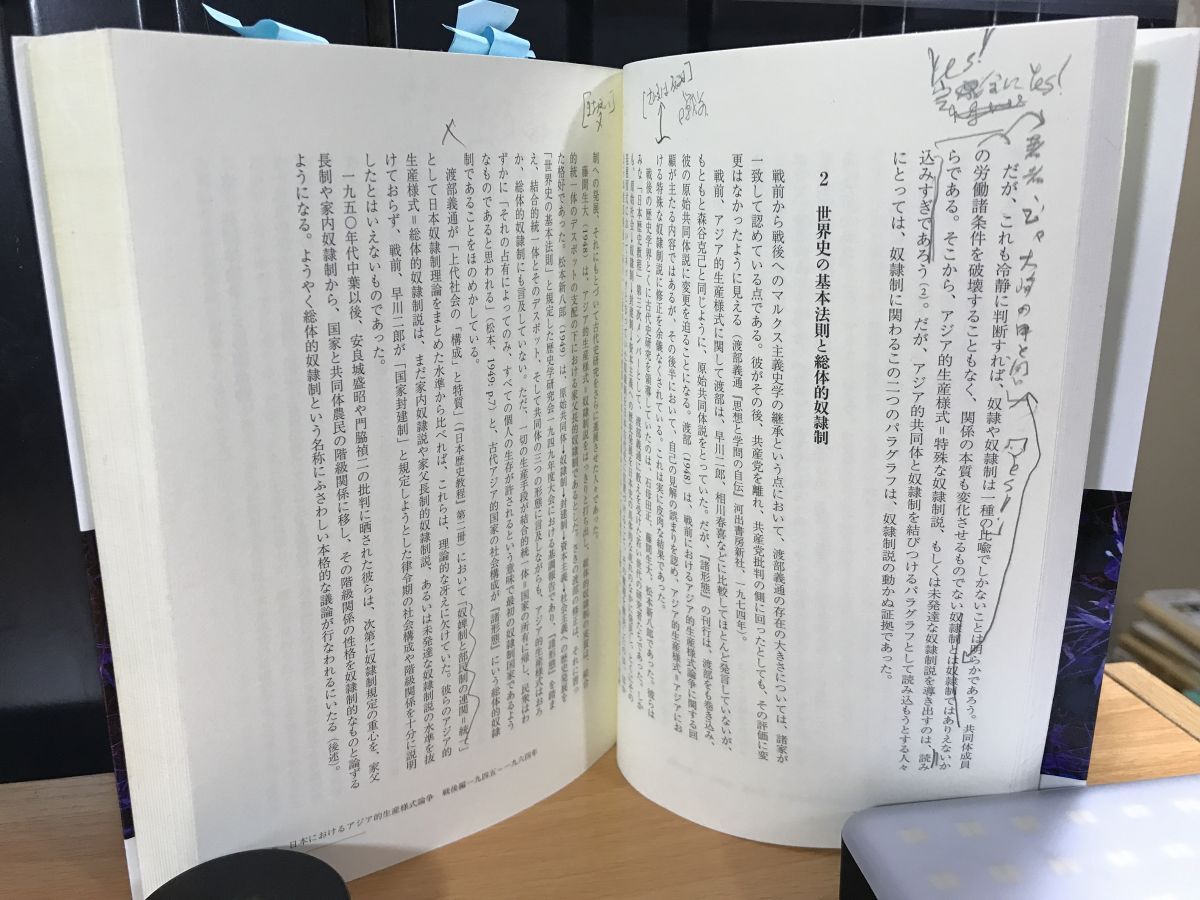 だが、これも冷静に判断すれば、奴隷や奴隷制は一種の比喩でしかないことは明らかであろう。共同体成員
の労働諸条件を破壊することもなく、関係の本質も変化させるものでない奴隷制とは奴隷制ではありえないか
らである。そこから、アジア的生産様式＝特殊な奴隷制説、もしくは未発達な奴隷制説を導き出すのは、読み
込みすぎであろう（2）。だが、アジア的共同体と奴隷制を結びつけるパラグラフとして読み込もうとする人々
にとっては、奴隷制に関わるこの二つのパラグラフは、奴隷制説の動かぬ証拠であった。
Yes!
Yes!
Yes!
2　世界史の基本法則と総体的奴隷制
戦前から戦後へのマルクス主義史学の継承という点において、渡部義通の存在の大きさについては、諸家が
一致して認めている点である。彼がその後、共産党を離れ、共産党批判の側に回ったとしても、その評価に変
更はなかったように見える（渡部義通『思想と学問の自伝』河出書房新社、一九七四年）。
戦前、アジア的生産様式に関して渡部は、早川二郎、相川春喜などに比較してほとんど発言していないが、
もともと森谷克己と同じように、原始共同体説をとっていた。だが、『諸形態』の刊行は、渡部をも巻き込み、
彼の原始共同体説に変更を迫ることになる。渡部（1948）は、戦前におけるアジア的生産様式論争に関する回
顧が主たる内容ではあるが、その後半において、自己の見解の誤まりを認め、アジア的生産様式＝アジアにお
ける特殊な奴隷制説に修正を余儀なくされている。これは実に皮肉な結果であった。
戦後の歴史学界とくに古代史研究を領導していたのは、石母田正、藤間生大、松本新八郎であった。彼らは
みな『日本歴史教程』第三次メンバーとして、渡部義通に教えを受けた若い世代の研究者たちであった。
制への発展、それにもとづいて古代史研究をさらに進展させた人々であった。
藤間生大（1948）は、アジア的生産様式＝奴隷制説をはっきりと打ち出し、
的統一体のデスポットの支配の下における家父長的奴隷制であるとした。さきの渡部の修正は、それに習っ
た格好であった。松本新八郎（1949）は、原始共同体→奴隷制→封建制→資本主義→社会主義への歴史発展を
「世界史の基本法則」と規定した歴史学研究会一九四九年度大会における基調報告であり、『諸形態』を踏ま
え、結合的統一体とそのデスポット、そして共同体の三つの形態に言及しながらも、アジア的生産様式はおろ
か、総体的奴隷制にも言及していない。ただ、一切の生産手段が結合的統一体＝国家の所有に帰し、民衆はわ
ずかに「それの占有によってのみ、すべての個人の生存が許されるという意味で最初の奴隷制国家であるよう
なものであると思われる」（松本、1949: p.7）と、古代アジア的国家の社会構成が『諸形態』にいう総体的奴隷
制であることをほのめかしている。
渡部義通が「上代社会の「構成」と特質」（『日本歴史教程』第二冊）において「奴婢制と部民制の連関＝統一」
として日本奴隷制理論をまとめた水準から比べれば、これらは、理論的な冴えに欠けていた。彼らのアジア的
生産様式＝総体的奴隷制説は、まだ家内奴隷制説や家父長制的奴隷制説、あるいは未発達な奴隷制説の水準を抜
けておらず、戦前、早川二郎が「国家封建制」と規定しようとした律令期の社会構成や階級関係を十分に説明
したとはいえないものであった。
一九五〇年代中葉以後、安良城盛昭や門脇禎二の批判に晒された彼らは、次第に奴隷制規定の重心を、家父
長制や家内奴隷制から、国家と共同体農民の階級関係に移し、その階級関係の性格を奴隷制的なものと論ずる
ようになる。ようやく総体的奴隷制という名称にふさわしい本格的な議論が行なわれるにいたる（後述）。
日本におけるアジア的生産様式論争　戦後編一九四五～一九六四年